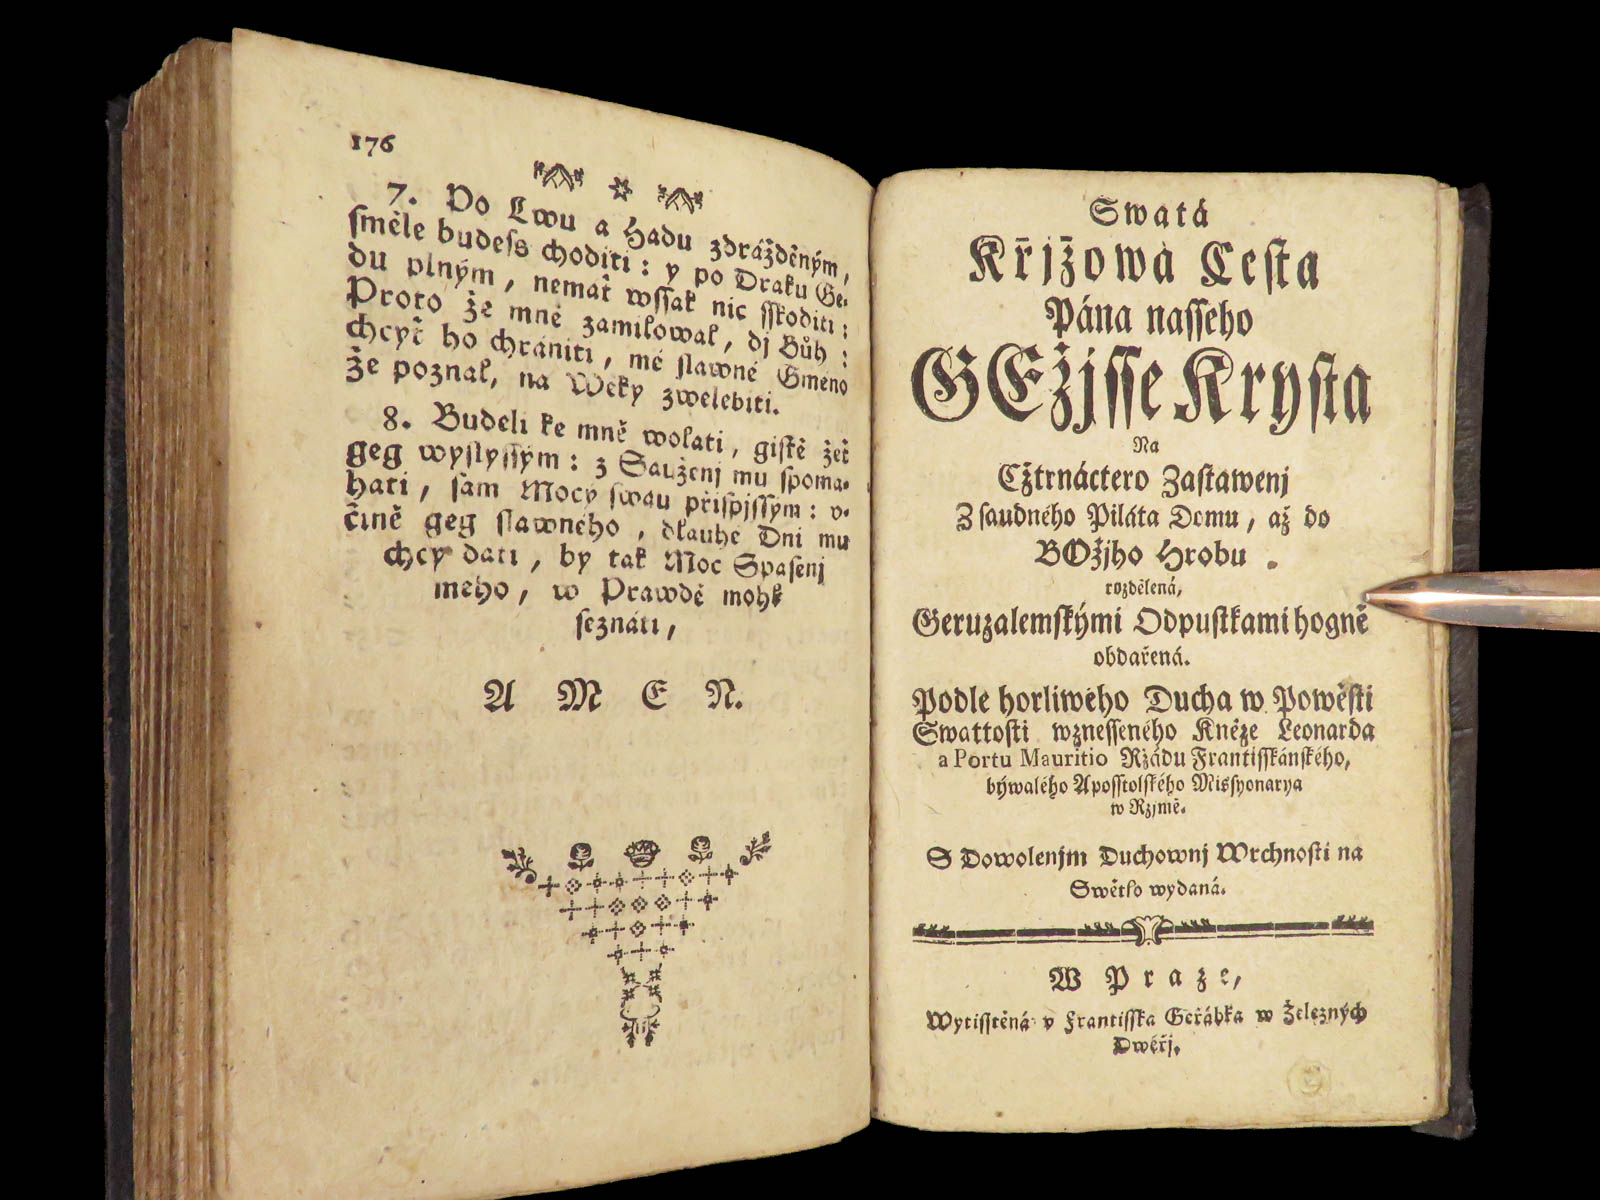 176
7. Po Lwu a Hadu zdrážděným,
směle budeſs choditi : y po Draku Ge-
du plným, nemáť wſſak nic sſkoditi :
Proto že mně zamilowal, dj Bůh :
chcyť ho chrániti, mé ſlawné Gméno
že poznal, na Wěky zwelebiti.
8. Budeli ke mně wolati, giſtě žeť
geg wyſlyſſým : z Sauženj mu ſpoma-
hati, ſám Mocý ſwau přiſpjſſým : v-
čině geg ſlawného, dlauhé Dni mu
chcy dati, by tak Moc Spaſenj
mého, w Prawdě mohl
ſeznáti,
A M E N.
Swatá
Křjžowá Ceſta
Pána naſſeho
GEžjſſe Kryſta
Na
Cžtrnáctero Zaſtawenj
Z ſaudného Piláta Domu, až do
BOžjho Hrobu.
rozdělená,
Geruzalemſkými Odpuſtkami hogně
obdařená.
Podle horliwého Ducha w Powěſti
Swattoſti wzneſſeného Kněze Leonarda
a Portu Mauritio Ržádu Frantiſſkánſkého,
býwalého Apoſſtolſkého Miſsyonarya
w Ržjmě.
S Dowolenjm Duchownj Wrchnoſti na
Swětlo wydaná.
W Praze,
Wytiſſtěná v Frantiſſka Geřábka w Železných
Dwéřj.